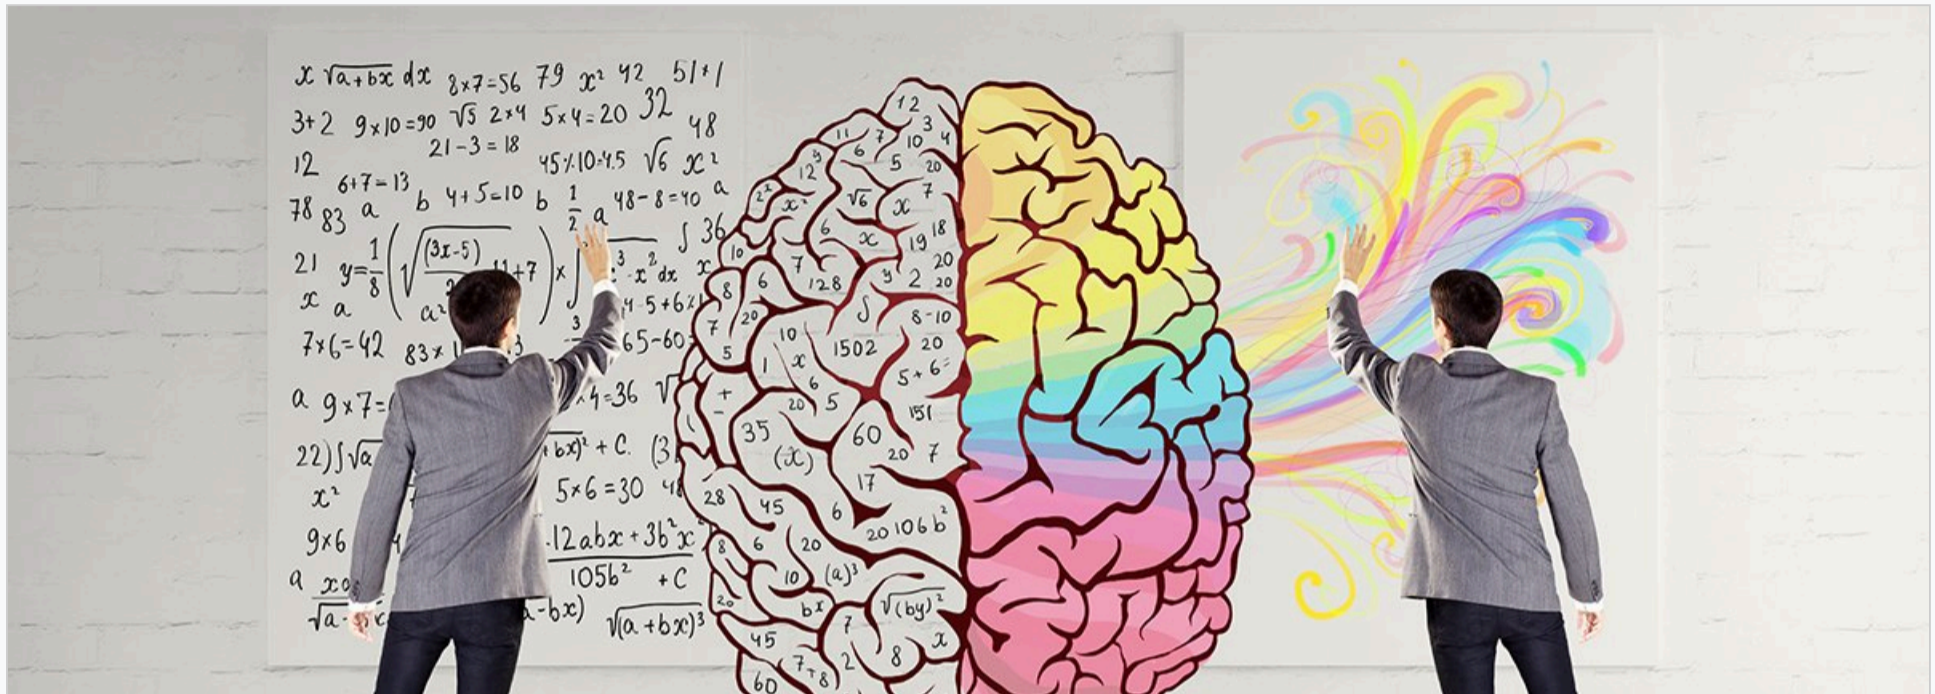 x √a+bx dx 8×7=56 79 x² 42 51+1
3+2 9×10=90 √5 2×4 5×4=20 32
21-3=18 48
12 45%10=4.5 √6 x²
6+7=13 b 4+5=10 b 1/2 48-8=40 a
78 83 a a
21 y=1/8 (√(3x-5) +7)× ∫ 36
x a a² x² dx x
-5+6
7×6=42 83× 65-60
a 9×7= 4=36 √
22)∫√a bx)²+C. (3
x² 5×6=30 48
9×6 4 12abx+3b²x²
a 105b² +C
√a- a-bx) √(a+bx)³
12
11 7 3
6 10 4
12 5 20
2² x² √6 x 7
6 x 19 18
10 7 20
8 6 128 y 2 20
7 20 ∫ 8-10
10 1502 20
5 1 x 5+6=
6
+ - 20 5 151
35 60
(x) 20 7
17
28 45 6 20 106b²
8 6 20
10 (a)³
20 bx √(by)²
45 7 x
7+8 2 8
60